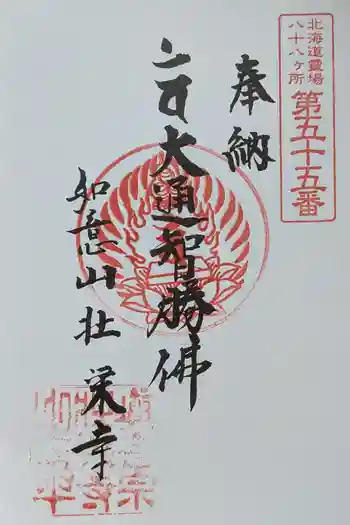 北海道霊場
八十八ヶ所
第五十五番
奉納
大通智勝佛
如意山壮栄寺